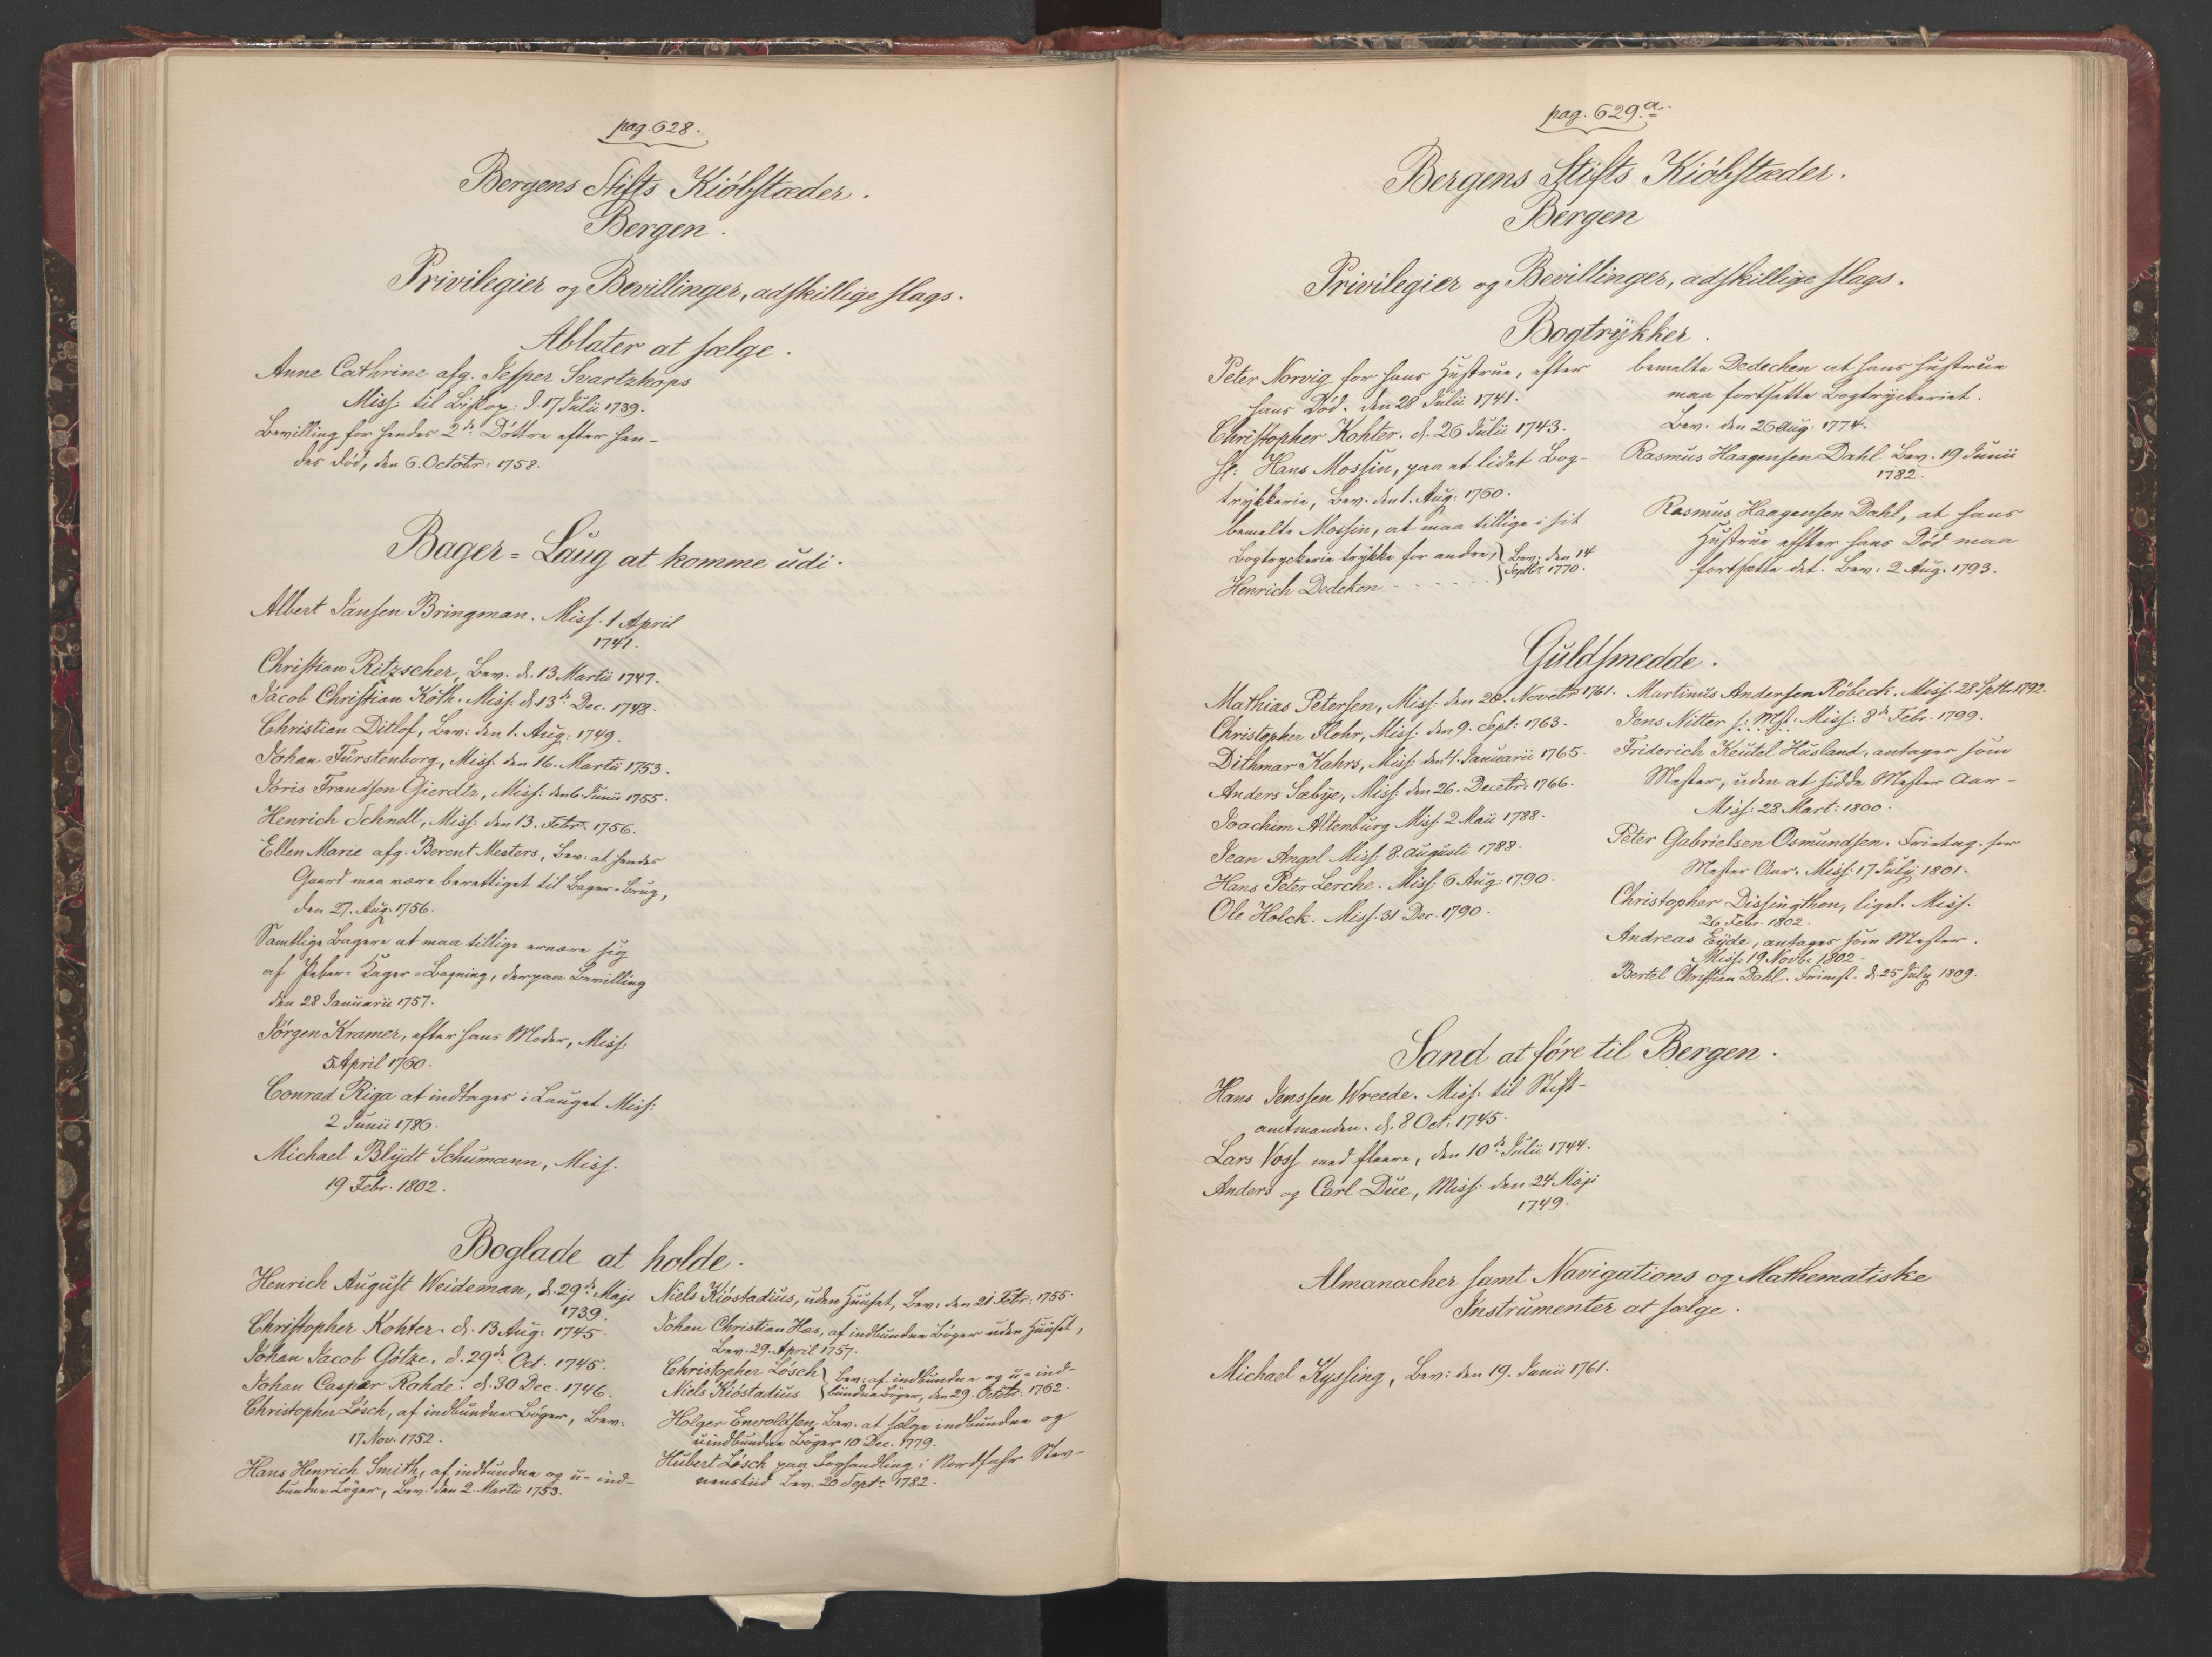 pag. 628.
Bergens Stifts Kiöbstæder.
Bergen.
Privilegier og Bevillinger, adskillige slags.
Ablater at sælge.
Anne Cathrine afg. Jesper Svartzkops
Miss: til Biskop: d. 17 Julii 1739.
Bevilling for hendes 2de Döttre efter hen-
des död, den 6. Octobr: 1758.
Bager = Laug at komme udi.
Albert Jansen Bringman. Miss. 1 April
1741.
Christian Ritzscher, Bev. d. 13 Martii 1747.
Jacob Christian Köth. Miss: d. 13de Dec. 1748.
Christian Ditlof, Bev: den 1. Aug: 1749.
Johan Fürstenborg, Miss. den 16. Martii 1753.
Joris Frandsen Gierdtz, Miss: den 6 Junii 1755.
Henrich Schnell, Miss: den 13. Febr. 1756.
Ellen Marie afg. Berent Mesters, Bev: at hendes
Gaard maa være berettiget til Bager-Brug,
den 27. Aug. 1756.
Samtlige Bagere at maa tillige ernære sig
af Peber = Kager = Bagning, derpaa Bevilling
den 28 Januarii 1757.
Jörgen Kramer, efter hans Moder, Miss:
5 April 1760.
Conrad Riga at indtages i Lauget Miss:
2 Junii 1786.
Michael Blÿdt Schumann, Miss.
19 Febr. 1802.
Boglade at holde.
Henrich August Weideman, d. 29de Maji
1739.
Christopher Kohter. d. 13 Aug: 1745.
Johan Jacob Götze. d. 29de Oct. 1745.
Johan Casper Rohde. d. 30 Dec. 1746.
Christopher Lösch, af indbundne Böger, Bev.
17 Nov. 1752.
Hans Henrich Smith, af indbundne og u= ind-
bundne Böger, Bev. den 2. Martii 1753.
Niels Kiöstadius, uden Huuset, Bev: den 21 Febr. 1755.
Johan Christian Has, af indbundne Böger uden Huuset,
Bev. 29. April 1757.
Christopher Lösch } Bev: af indbundne og u= ind-
Niels Kiöstadius } bundne Böger, den 29. Octobr. 1762.
Holger Envoldsen, Bev. at sælge indbundne og
uindbundne Böger 10 Dec. 1779.
Hubert Lösch paa Boghandling i Nordfahr Stev-
nenstiid Bev. 20 Septr 1782.
pag. 629.a
Bergens Stifts Kiöbstæder.
Bergen
Privilegier og Bevillinger, adskillige slags.
Bogtrÿkker.
Peter Norvig for hans Hustrue, efter
hans Död. den 28 Julii 1741.
Christopher Kohter. d. 26 Julii 1743.
Hr: Hans Mossin, paa et lidet Bog-
trÿkkerie, Bev. den 1. Aug. 1760.
bemelte Mossin, at maa tillige i sit
Bogtryckerie trÿkke for andre, } Bev: den 14
Henrich Dedeken - - - - - - } Septbr. 1770.
bemelte Dedechen at hans hustrue
maa fortsette Bogtrÿckeriet.
Bev. den 26 Aug. 1774.
Rasmus Haagensen Dahl Bev. 19 Junii
1782.
Rasmus Haagensen Dahl, at hans
Hustrue efter hans Död maa
fortsætte det. Bev: 2 Aug. 1793.
Guldsmedde.
Mathias Petersen, Miss: den 20. Novebr 1761.
Christopher Flohr, Miss. den 9. Sept: 1763.
Dithmar Kahrs, Miss. den 4. Januarii 1765.
Anders Sæbÿe, Miss: den 26. Decebr. 1766.
Joachim Altenburg Miss: 2 Maii 1788.
Jean Angel Miss: 8. Augusti 1788.
Hans Peter Lerche. Miss: 6 Aug: 1790.
Ole Holck. Miss. 31 Dec. 1790.
Martinus Andersen Röbeck. Miss. 28 Sptbr. 1792.
Jens Nitter s: Mst. Miss: 8de Febr. 1799.
Friderich Keutel Husland, antages som
Mester, uden at sidde Mester Aar-
Miss: 28 Mart: 1800.
Peter Gabrielsen Osmundsen. Frietag. for
Mester Aar. Miss: 17 Julÿ 1801.
Christopher Dissingthon, ligel. Miss.
26 Febr. 1802.
Andreas Eÿde, antages som Mester.
Miss: 19 Novb: 1802.
Bertel Christian Dahl. Frimst. d. 25 July 1809.
Sand at före til Bergen.
Hans Jenssen Wreede. Miss: til Stift-
amtmanden. d. 8 Oct. 1745.
Lars Voss med fleere, den 10de Julii 1744.
Anders og Carl Düe, Miss: den 24 Maji
1749.
Almanacher samt Navigations og Mathematiske
Instrumenter at sælge.
Michael Kyssing, Bev: den 19. Junii 1761.